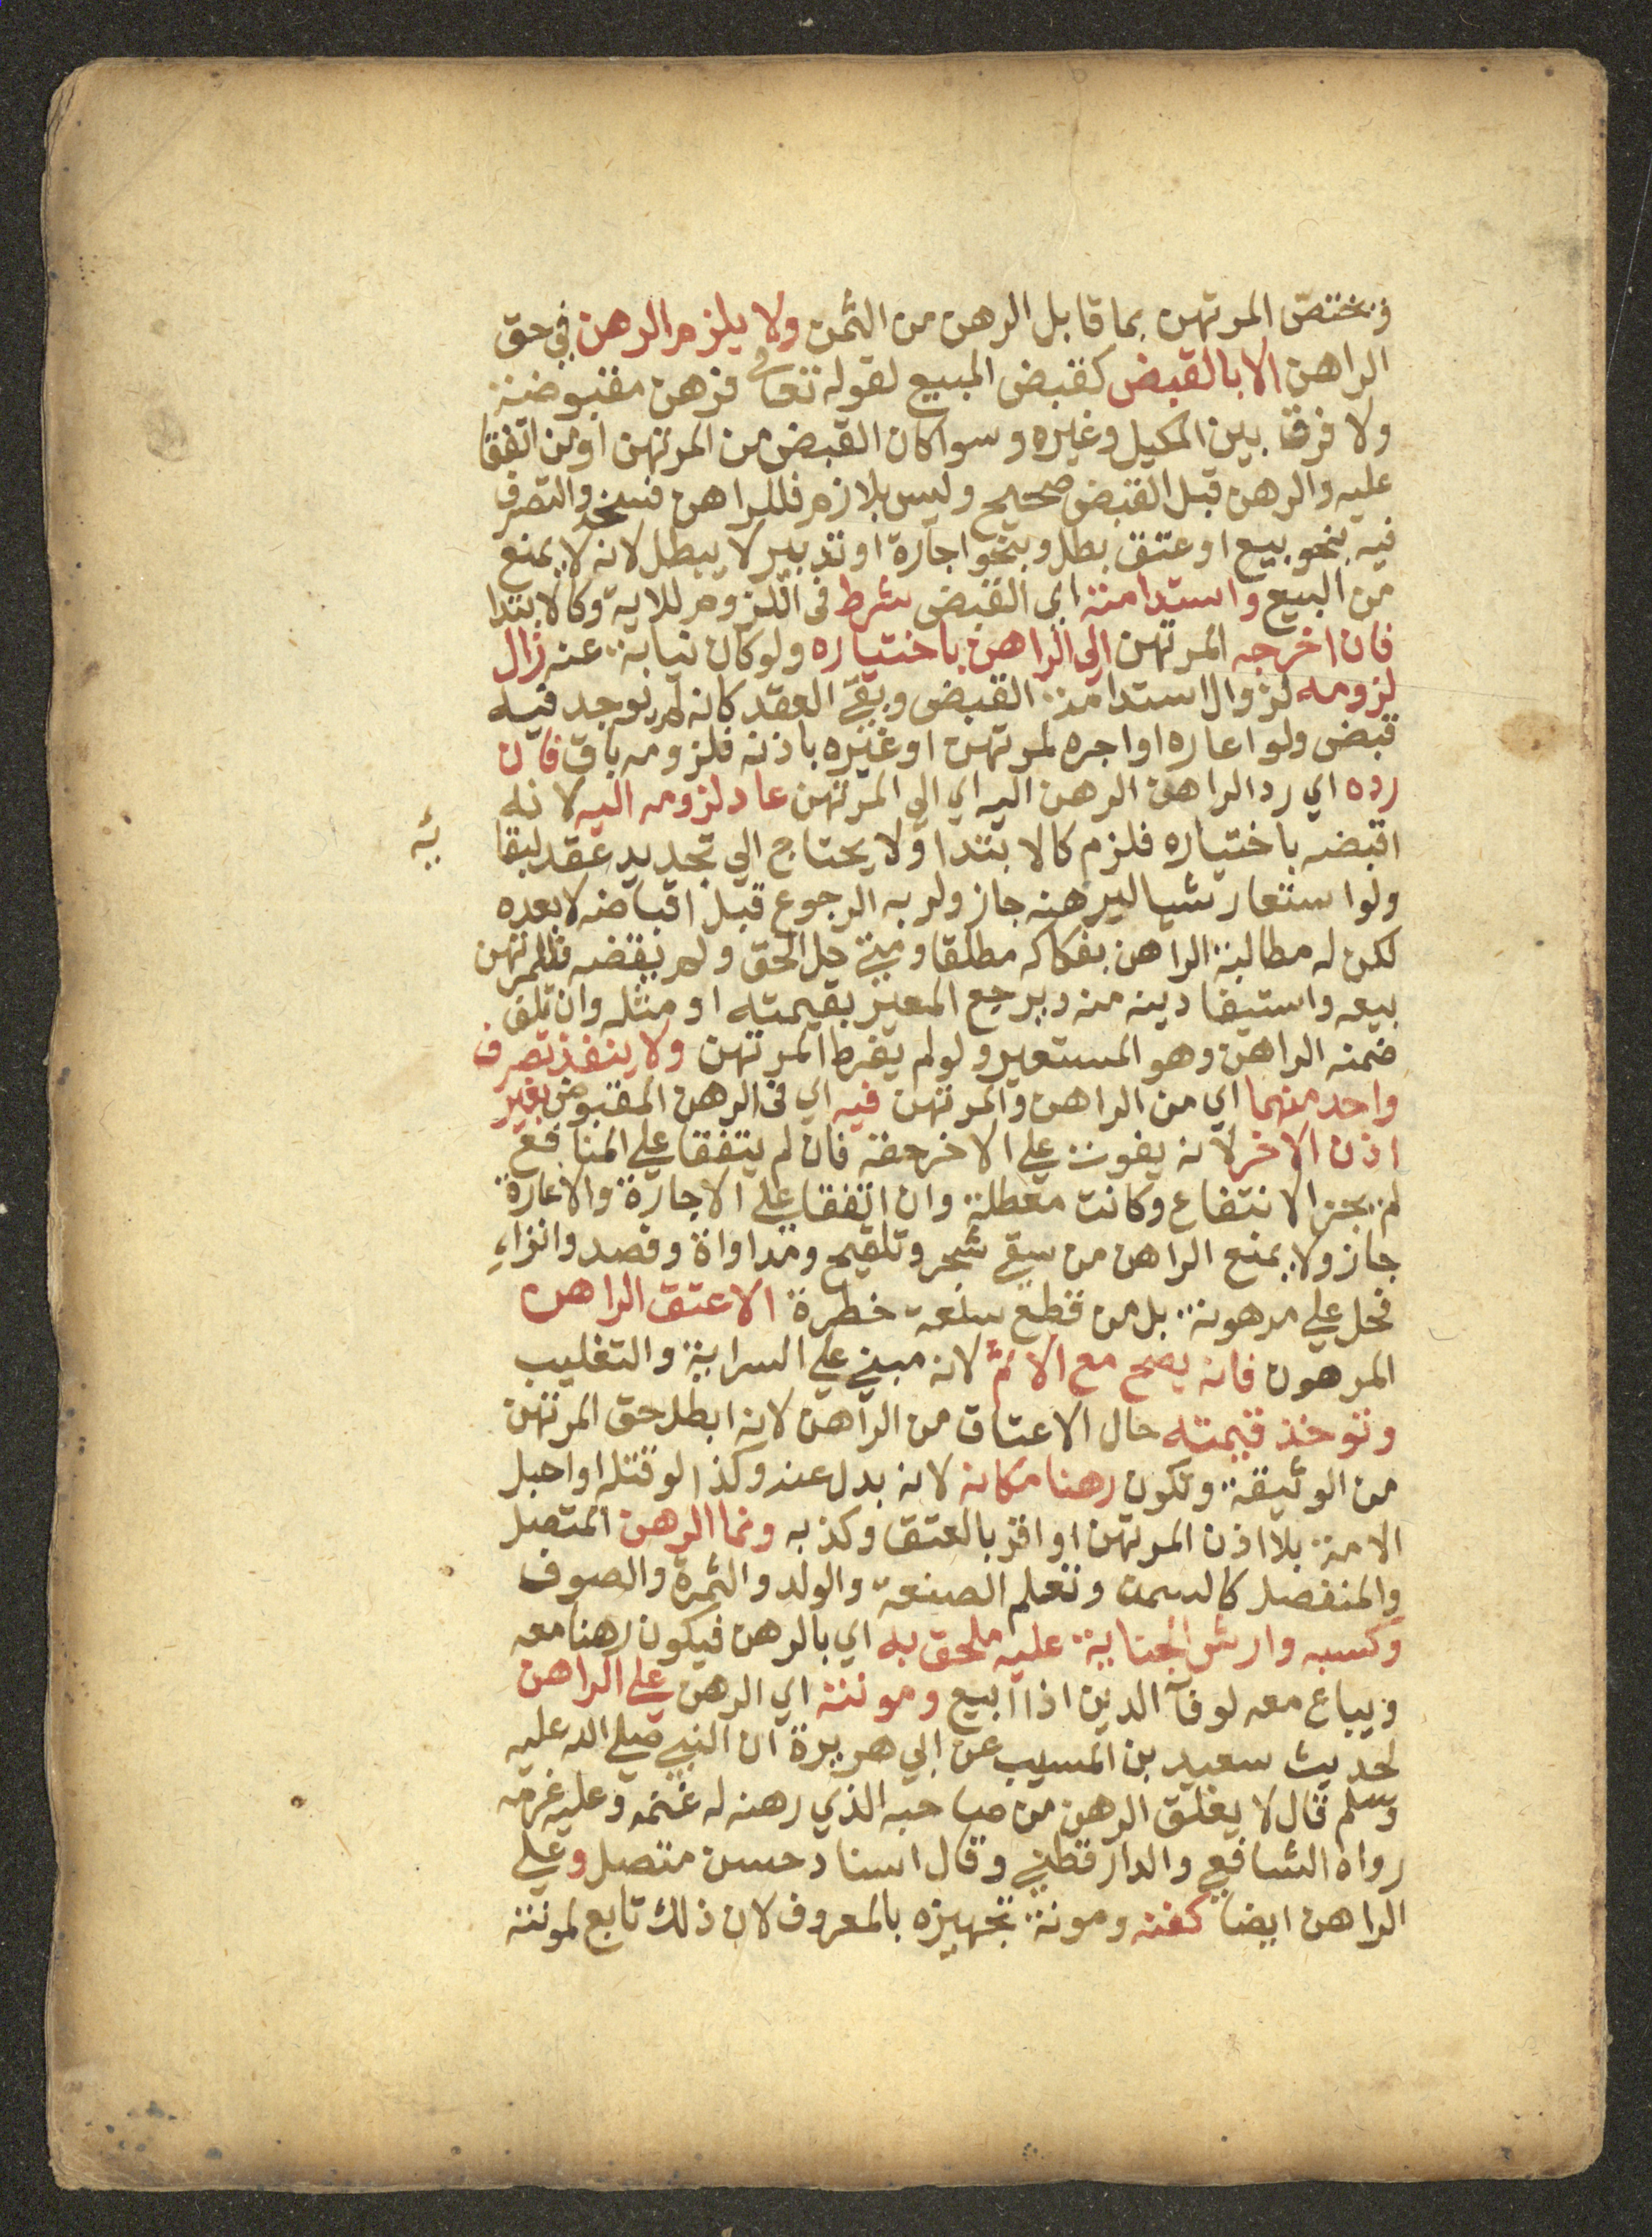 ويختص المرتهن بما قابل الرهن من الثمن ولا يلزم الرهن في حق
الراهن الا بالقبض كقبض المبيع لقوله تعالى فرهن مقبوضة
ولا فرق بين المكيل وغيره وسوا كان القبض من المرتهن او من اتفقا
عليه والرهن قبل القبض صحيح وليس بلازم فللراهن فسخه والتصرف
فيه بنحو بيع او عتق بطل وبنحو اجارة او تدبير لا يبطل لانه لا يمنع
من البيع واستدامته اي القبض شرط في اللزوم للاية وكالابتدا
فان اخرجه المرتهن الي الراهن باختياره ولو كان نيابة عنه زال
لزومه لزوال استدامة القبض وبقي العقد كانه لم يوجد فيه
قبض ولو اعاره او اجره لمرتهن او غيره باذنه فلزومه باق فان
رده اي رد الراهن الرهن اليه اي الي المرتهن عاد لزومه اليه لانه
اقبضه باختياره فلزم كالابتدا ولا يحتاج الي تجديد عقد لبقا
ئه
ولو استعار شيا ليرهنه جاز ولربه الرجوع قبل اقباضه لا بعده
لكن له مطالبة الراهن بفكاكه مطلقا ومتي حل الحق ولم يقضه فللمرتهن
بيعه واستيفا دينه منه ويرجع المعير بقيمته او مثله وان تلف
ضمنه الراهن وهو المستعير ولو لم يفرط المرتهن ولا ينفذ تصرف
واحد منهما اي من الراهن والمرتهن فيه اي في الرهن المقبوض بغير
اذن الاخر لانه يفوت علي الاخر حقه فان لم يتفقا علي المنافع
لم يجز الانتفاع وكانت معطلة وان اتفقا علي الاجارة والاعارة
جاز ولا يمنع الراهن من سقي شجر وتلقيح ومداواة وفصد وانزاء
فحل علي مرهونة بل من قطع سلعة خطرة الا عتق الراهن
المرهون فانه يصح مع الاثم لانه مبني علي السراية والتغليب
وتوخذ قيمته حال الاعتاق من الراهن لانه ابطل حق المرتهن
من الوثيقة وتكون رهنا مكانه لانه بدل عنه وكذا لو قتله او احبل
الامة بلا اذن المرتهن او اقر بالعتق وكذبه ونما الرهن المتصل
والمنفصل كالسمن وتعلم الصنعة والولد والثمرة والصوف
وكسبه وارش الجناية عليه ملحق به اي بالرهن فيكون رهنا معه
ويباع معه لوفآ الدين اذا ابيع ومونته اي الرهن علي الراهن
لحديث سعيد بن المسيب عن ابي هريرة ان النبي صلي الله عليه
وسلم قال لا يغلق الرهن من صاحبه الذي رهنه له غنمه وعليه غرمه
رواه الشافعي والدارقطني وقال اسناد حسن متصل وعلي
الراهن ايضا كفنه ومونة تجهيزه بالمعروف لان ذلك تابع لمونته